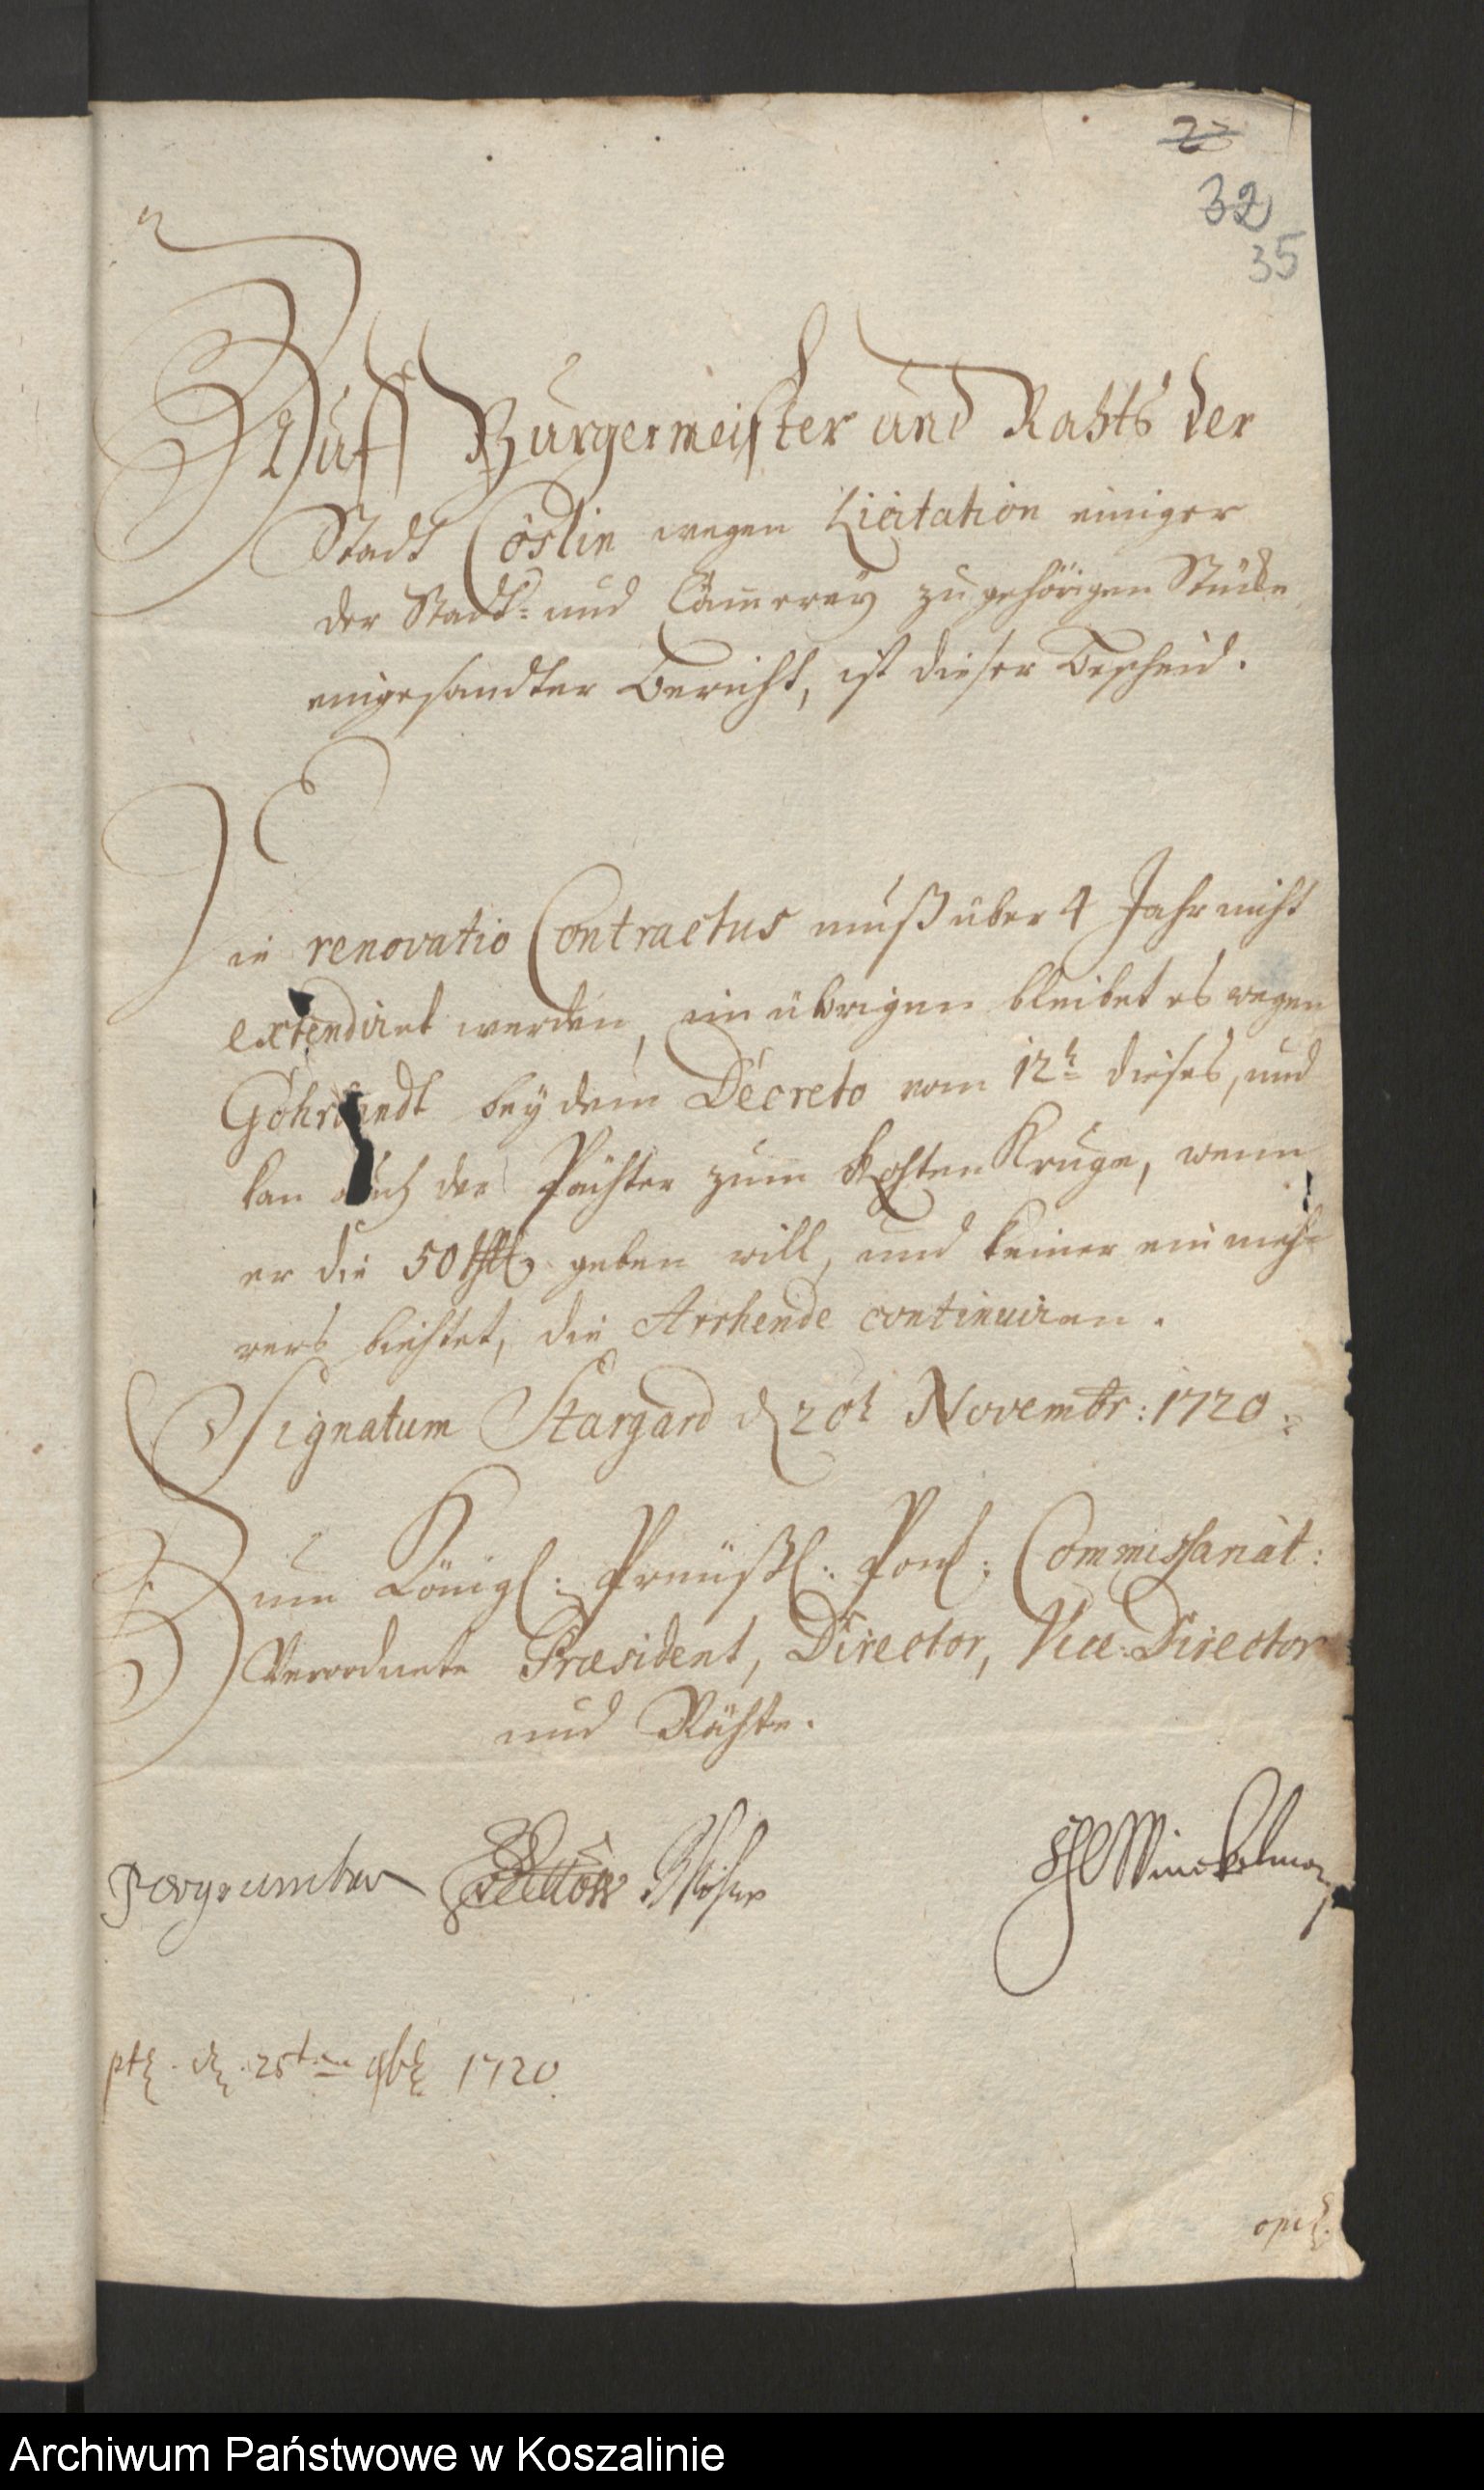 2
32
35
Auff Burgermeister und Rahts der
Stadt Cöslin wegen Licitation einiger
der Stadt- und Cämmerey zugehörigen Stücke
eingesandter Bericht, ist dieser Bescheid.
Die renovatio Contractus muß über 4 Jahr nicht
extendiret werden, im übrigen bleibet es wegen
bey dem Decreto vom 12t dieses, und
kan auch der Pächter zum Kruge, wenn
er die 50 Rthlr geben will, und keiner ein meh-
rers biehtet, die Arrhende continuiren.
Signatum Stargard d 20t Novembr: 1720.
Zum Königl: Preüßl: Pom: Commissariat:
Verordnete Præsident, Director, Vice-Director
und Rähte.
Winckelman
d. 25ten 9br 1720.
Archiwum Państwowe w Koszalinie